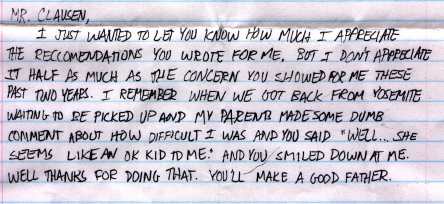 MR. CLAUSEN,
I JUST WANTED TO LET YOU KNOW HOW MUCH I APPRECIATE
THE RECCOMENDATIONS YOU WROTE FOR ME, BUT I DON'T APPRECIATE
IT HALF AS MUCH AS THE CONCERN YOU SHOWED FOR ME THESE
PAST TWO YEARS. I REMEMBER WHEN WE GOT BACK FROM YOSEMITE
WAITING TO BE PICKED UP AND MY PARENTS MADE SOME DUMB
COMMENT ABOUT HOW DIFFICULT I WAS AND YOU SAID "WELL... SHE
SEEMS LIKE AN OK KID TO ME." AND YOU SMILED DOWN AT ME.
WELL THANKS FOR DOING THAT. YOU'LL MAKE A GOOD FATHER.